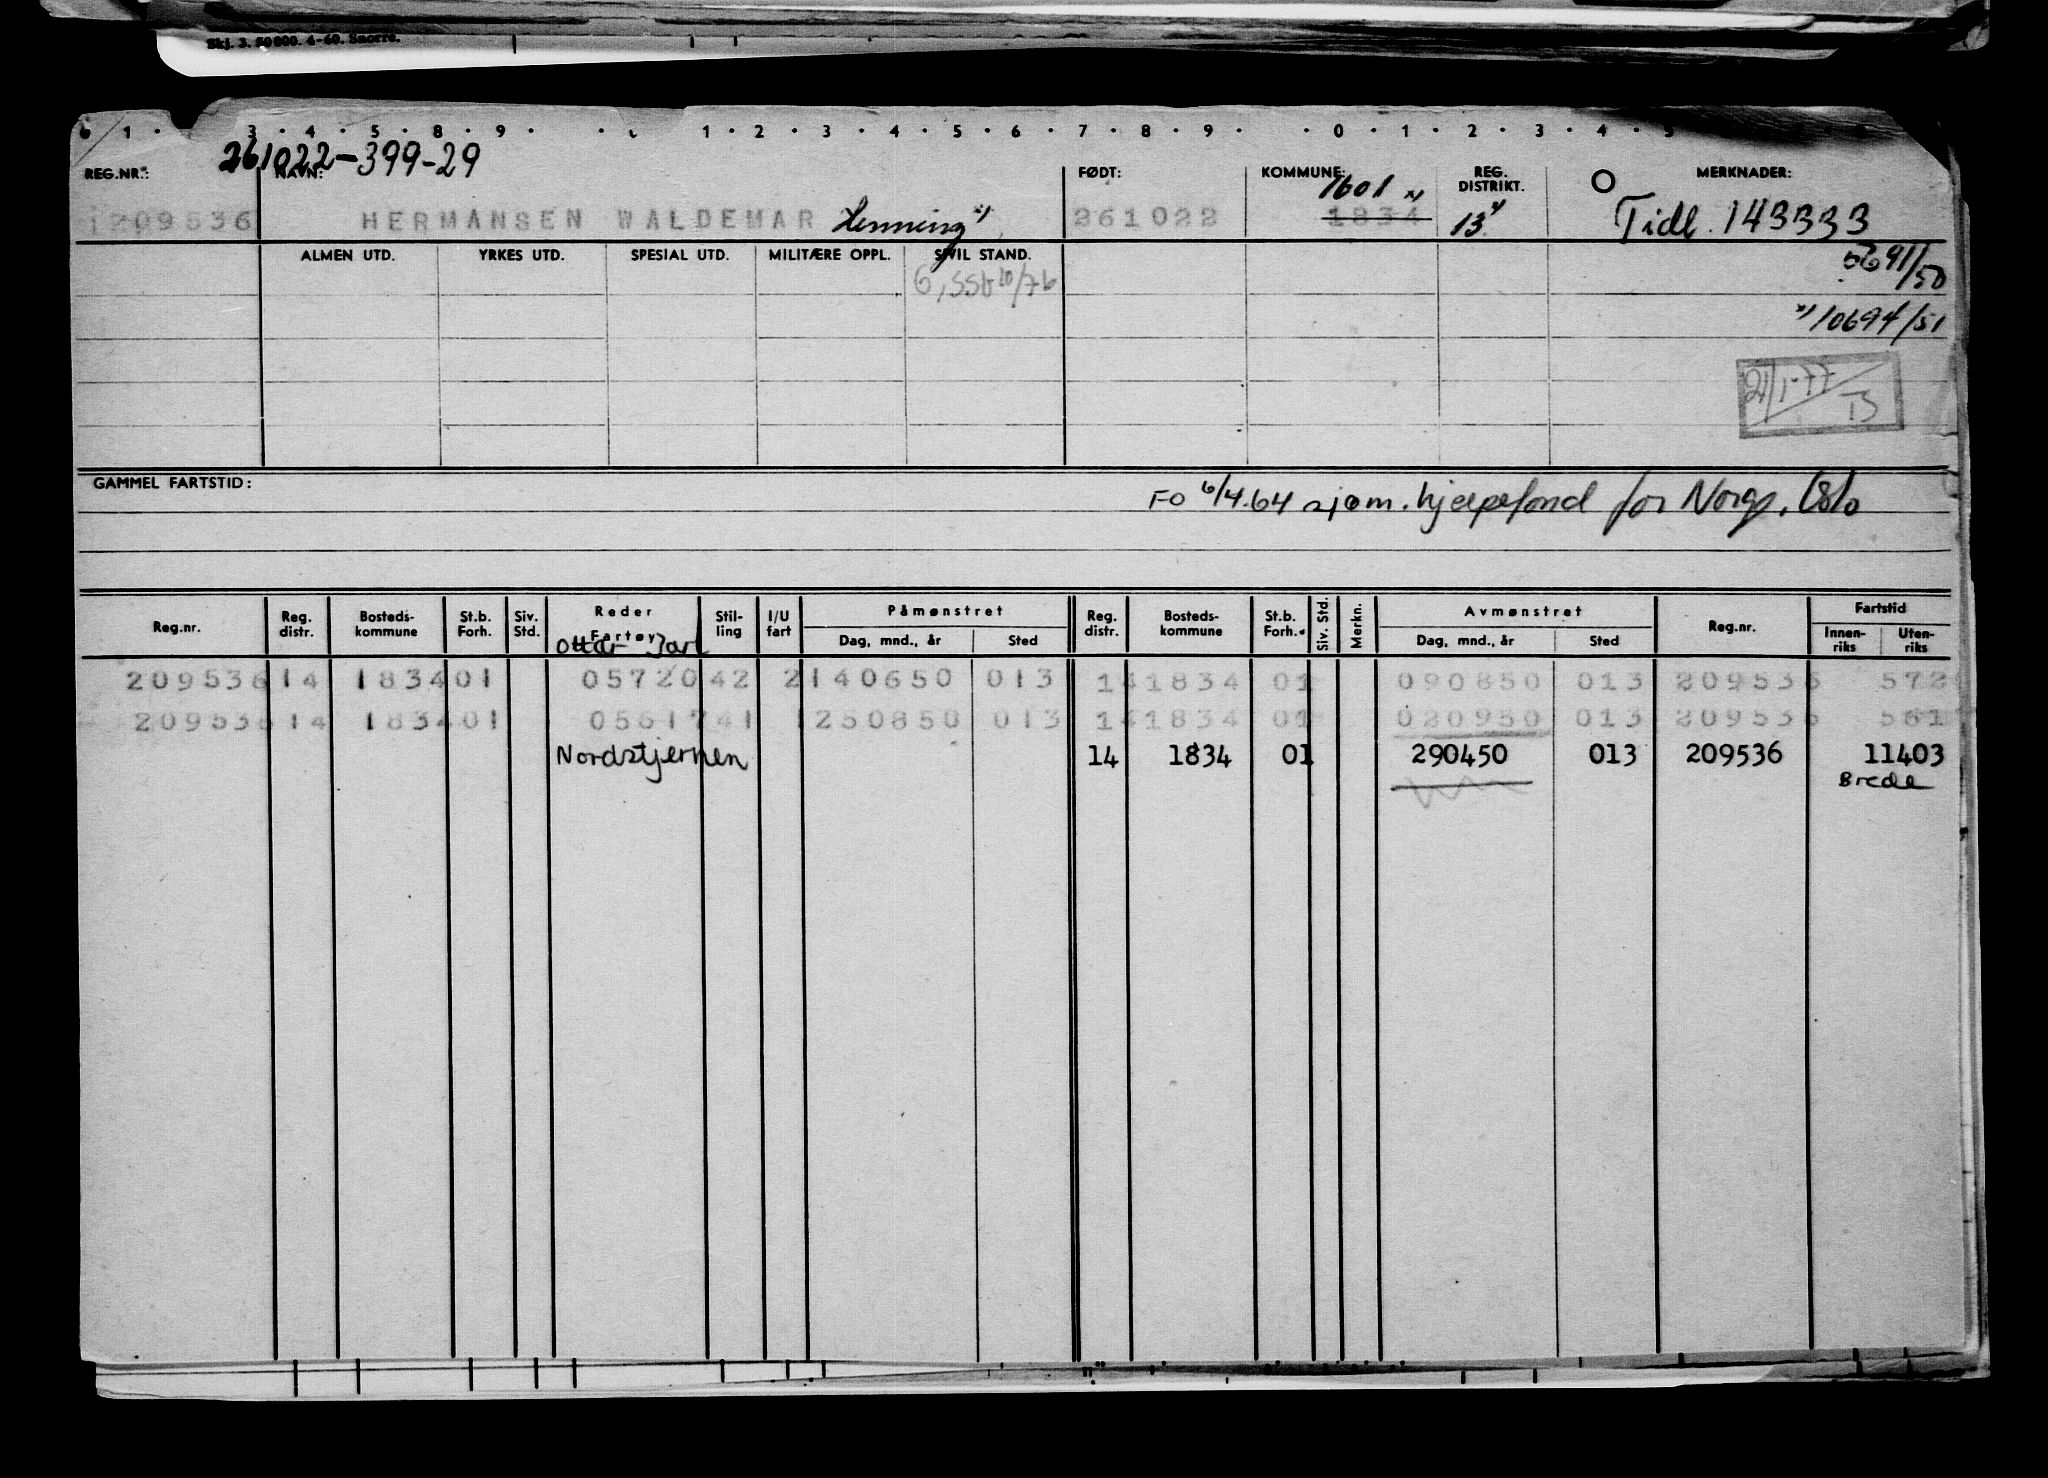 Skj. 3. 50 000. 4-60. Snorre.
1 3 4 5 8 9 1 2 3 4 5 6 7 8 9 0 1 2 3 4 5
261022-399-29
REG.NR.: NAVN: FØDT: KOMMUNE: REG. DISTRIKT. MERKNADER:
1601 x)
1209536 HERMANSEN WALDEMAR Henning x) 261022 1834 13 x) Tidl. 143333
ALMEN UTD. YRKES UTD. SPESIAL UTD. MILITÆRE OPPL. SIVIL STAND. 5691/50
6, SSb 10/76
x) 10694/51
21/1-77
GAMMEL FARTSTID:
FO 6/4.64 sjøm. hjelpefond for Norge, Oslo
Reg.nr. Reg. distr. Bosteds-kommune St.b. Forh. Siv. Std. Reder Fartøy Stil-ling I/U fart Påmønstret Dag, mnd., år Sted Reg. distr. Bosteds-kommune St.b. Forh. Siv. Std. Merkn. Avmønstret Dag, mnd., år Sted Reg.nr. Fartstid Innen-riks Uten-riks
Ottar Jarl
209536 14 1834 01 05720 42 2 140650 013 14 1834 01 090850 013 209536 572
209536 14 1834 01 05617 41 1 250850 013 14 1834 01 020950 013 209536 561
Nordstjernen 14 1834 01 290450 013 209536 11403
Brede